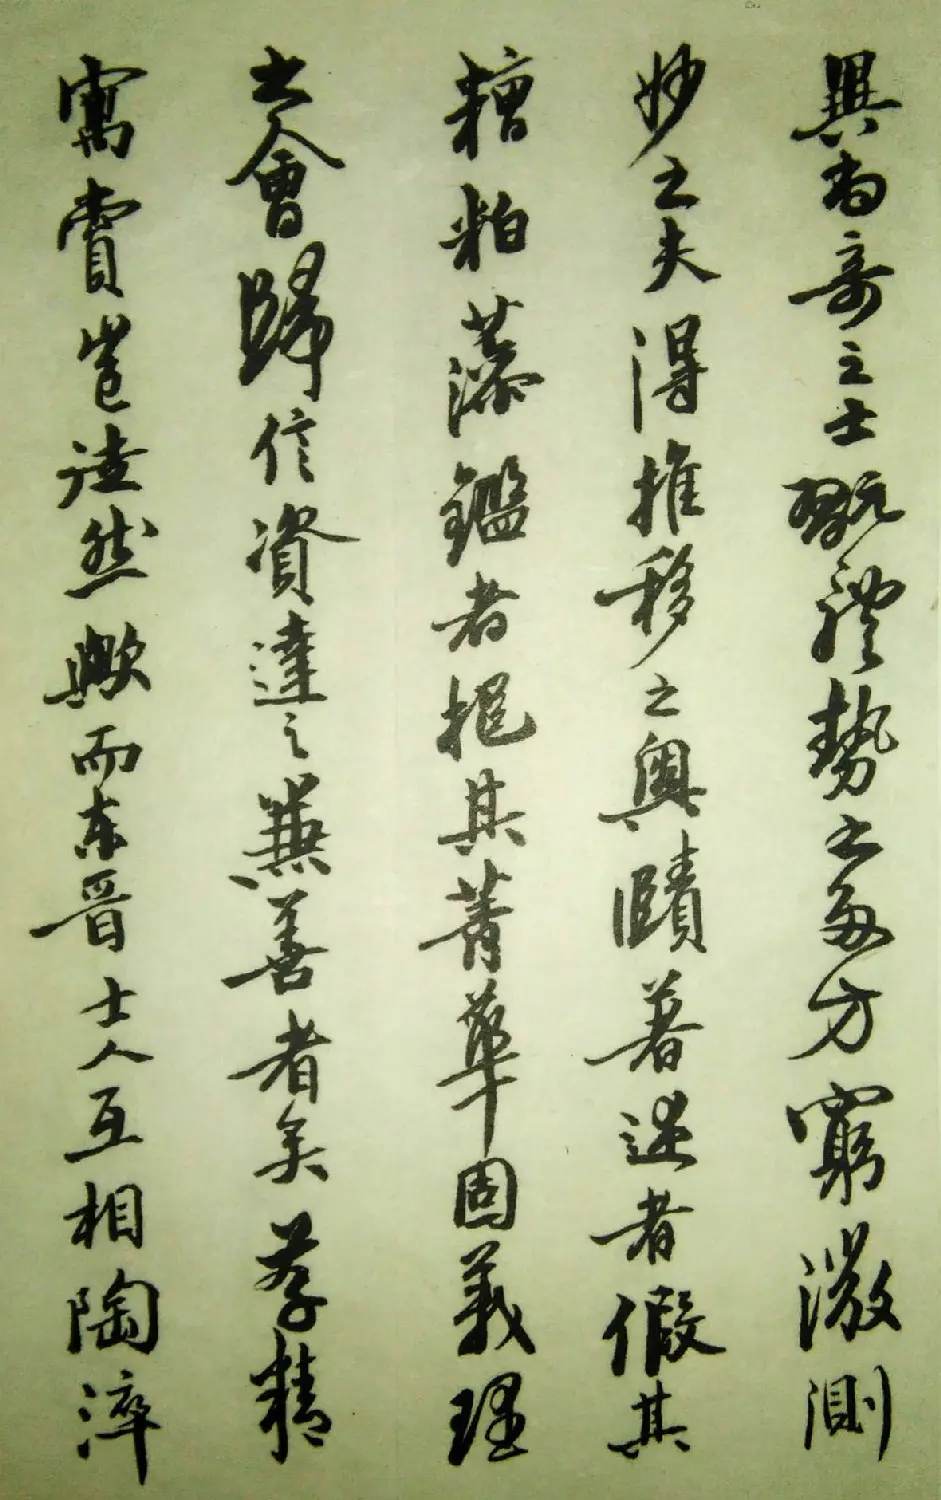 異尚奇之士翫體勢之多方窮微測
妙之夫得推移之奧賾著述者假其
糟粕藻鑑者挹其菁華固義理
之會歸信資達之兼善者矣存精
寓賞豈徒然歟而东晋士人互相陶淬